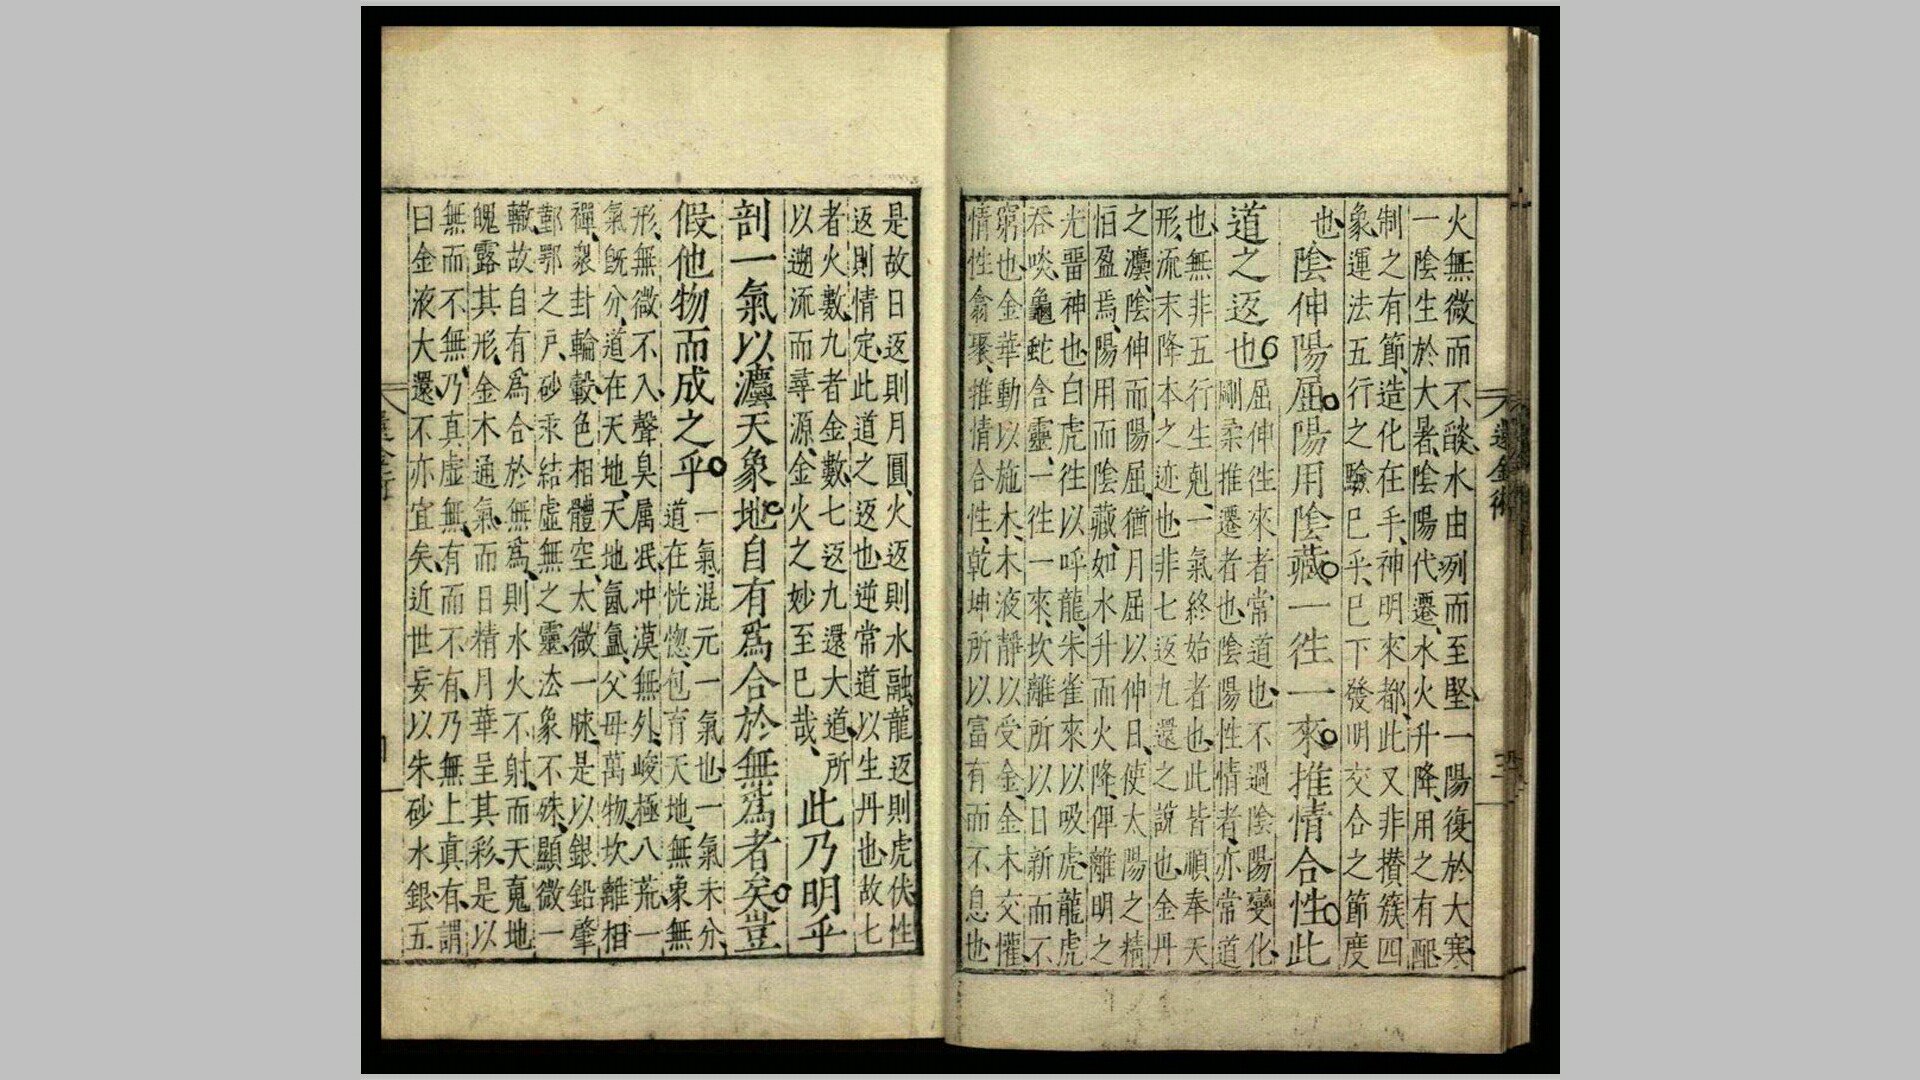 火無微而不燄、水由冽而至堅、一陽復於大寒、
一陰生於大暑、陰陽代遷、水火升降、用之有配、
制之有節、造化在手、神明來都、此又非攢簇四
象、運法五行之驗巳乎、巳下發明交合之節度
也、
陰伸陽屈。陽用陰藏。一往一來。推情合性。此
道之返也。
屈伸往來者常道也、不過陰陽變化、
剛柔推遷者也、陰陽性情者、亦常道
也、無非五行生剋、一氣終始者也、此皆順奉天
形、流末降本之迹也、非七返九還之說也、金丹
之灋、陰伸而陽屈、猶月屈以伸日、使太陽之精
怕盈焉、陽用而陰藏、如水升而火降、俾離明之
光晋神也、白虎往以呼龍、朱雀來以吸虎、龍虎
吞啖、龜蛇含靈、一往一來、坎離所以日新而不
窮也、金華動以施木、木液靜以受金、金木交懽、
情性翕聚、推情合性、乾坤所以富有而不息也
還金術
三
是故日返則月圓、火返則水融、龍返則虎伏、性
返則情定、此道之返也、逆常道以生丹也、故七
者火數、九者金數、七返九還、大道、所
以遡流而尋源、金火之妙至巳哉、
此乃明乎
剖一氣以灋天象地。自有爲合於無爲者矣。豈
假他物而成之乎。
一氣、混元一氣也、一氣未分、
道在恍惚、包育天地、無象無
形、無微不入、聲臭属泯、冲漠無外、峻極八荒、一
氣旣分、道在天地、天地氤氳、父母萬物、坎離相
禪、封輪轂、色相體空、太微一脉、是以銀鉛肇
鄞鄂之戸、砂汞結虛無之靈、法象不殊、顯微一
轍、故自有爲合於無爲、則水火不射、而天䰟地
魄露其形、金木通氣、而日精月華呈其彩、是以
無而不無、乃真虛無、有而不有、乃無上眞有、謂
曰金液大還、不亦宜矣、近世妄以朱砂水銀五